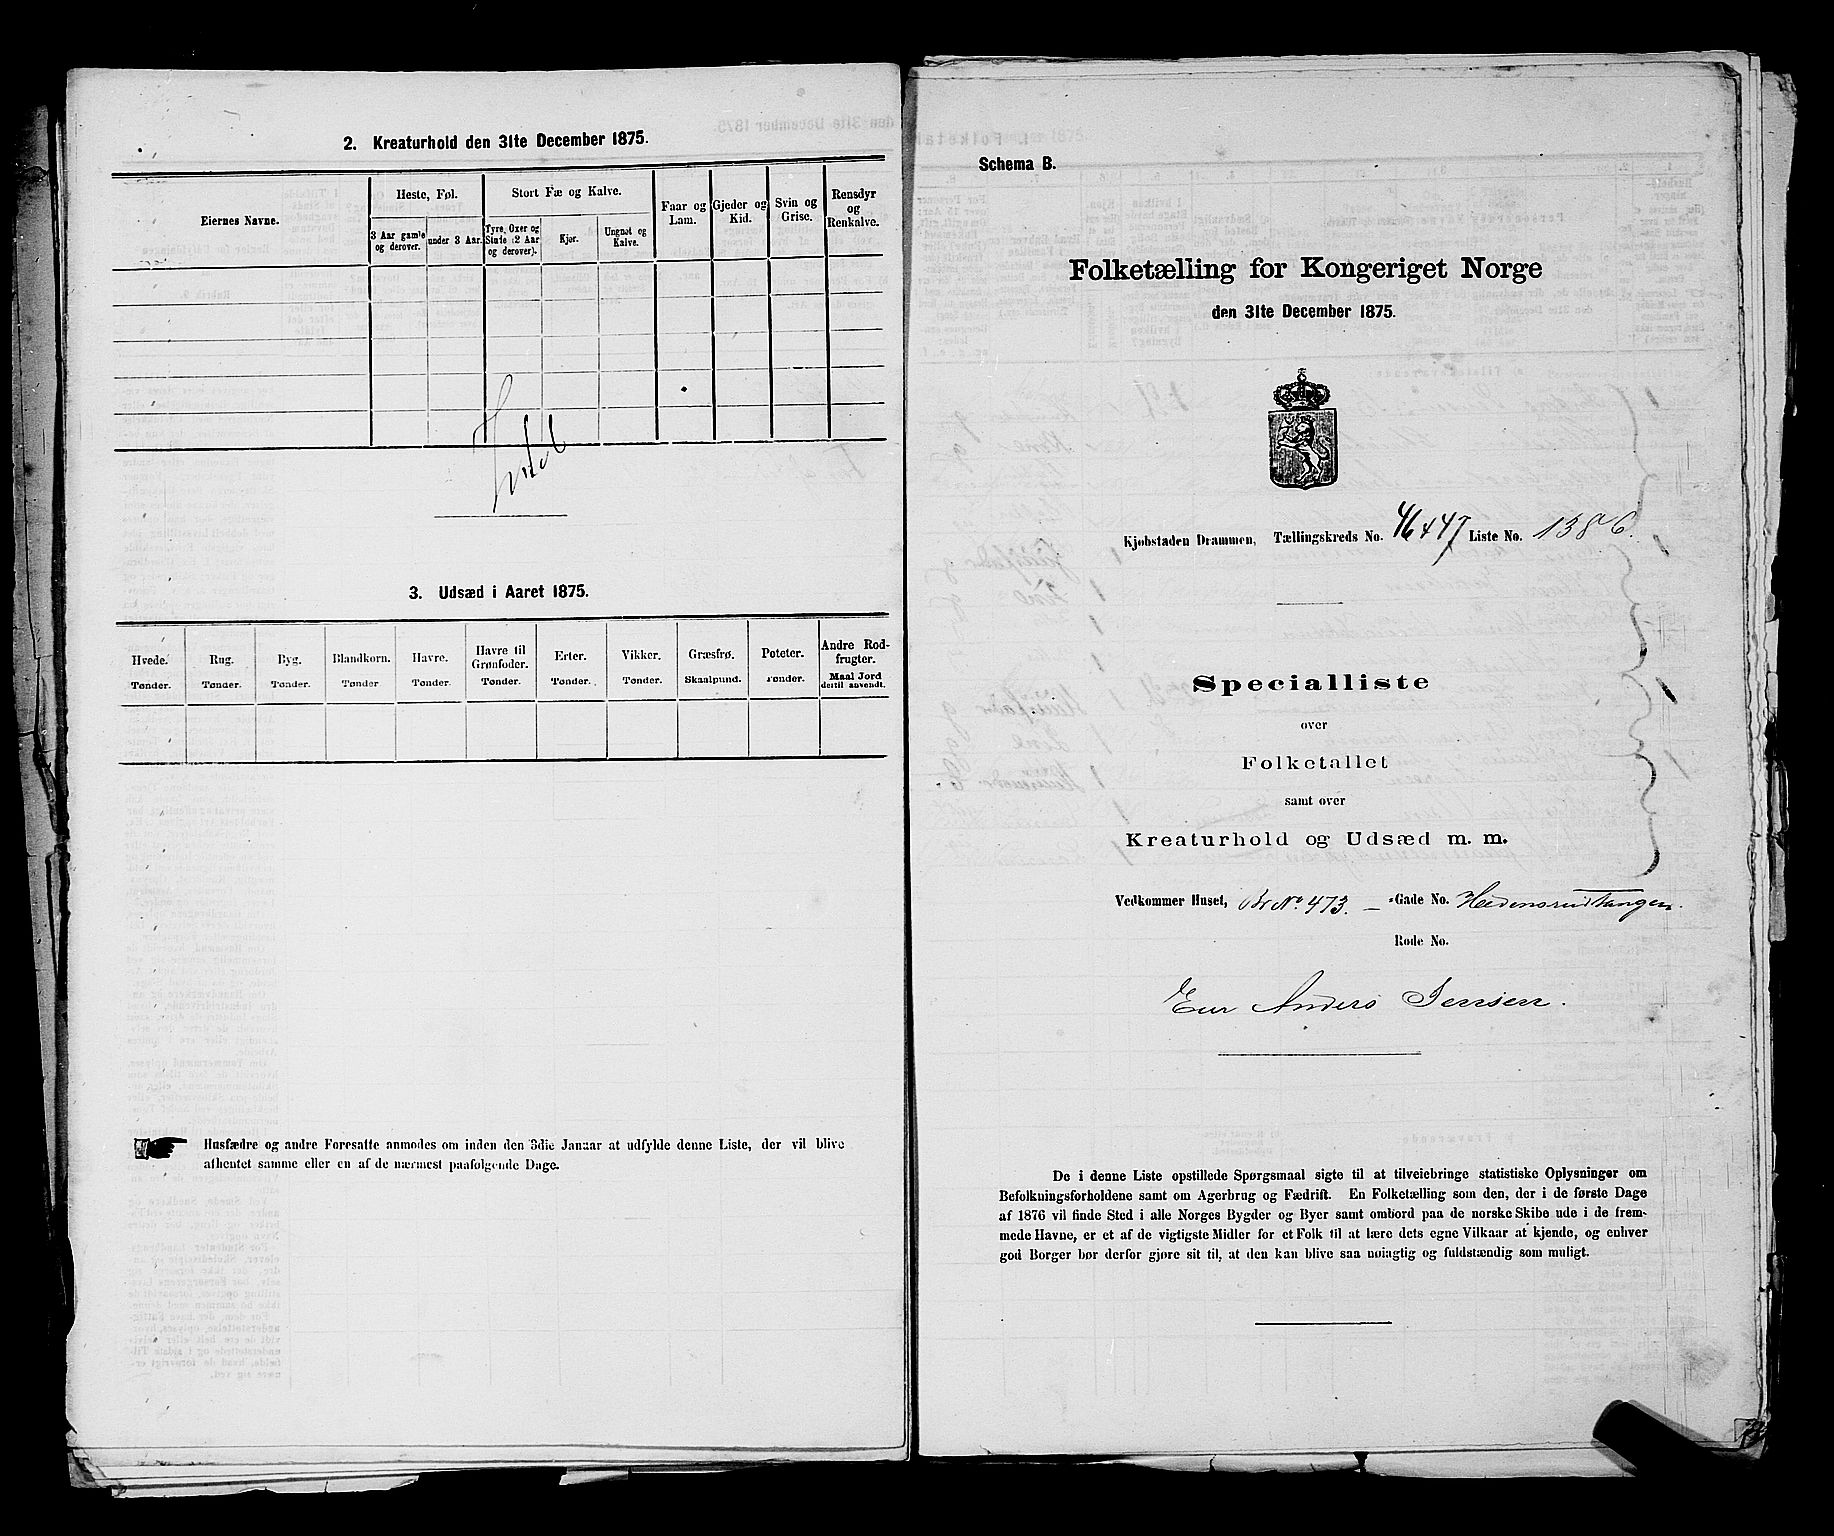 2. Kreaturhold den 31te December 1875.
Eiernes Navne.
Heste, Føl.
Stort Fæ og Kalve.
Faar og Lam.
Gjeder og Kid.
Svin og Grise.
Rensdyr og Renkalve.
3 Aar gamle og derover.
under 3 Aar.
Tyre, Oxer og Stude (2 Aar og derover).
Kjør.
Ungnøt og Kalve.
3. Udsæd i Aaret 1875.
Hvede. Rug. Byg. Blandkorn. Havre. Havre til Grønfoder. Erter. Vikker. Græsfrø. Poteter. Andre Rodfrugter.
Tønder. Tønder. Tønder. Tønder Tønder. Tønder. Tønder. Tønder. Skaalpund. Tønder. Maal Jord dertil anvendt.
Husfædre og andre Foresatte anmodes om inden den 3die Januar at udfylde denne Liste, der vil blive
afhentet samme eller en af de nærmest paafølgende Dage.
Schema B.
Folketælling for Kongeriget Norge
den 31te December 1875.
Kjøbstaden Drammen, Tællingskreds No. 46 & 47 Liste No.
Specialliste
over
Folketallet
samt over
Kreaturhold og Udsæd m. m.
Vedkommer Huset, Br No. 473. — -Gade No. Hedensrudtangen.
Rode No.
Eier Anders Jensen.
De i denne Liste opstillede Spørgsmaal sigte til at tilveiebringe statistiske Oplysninger om
Befolkningsforholdene samt om Agerbrug og Fædrift. En Folketælling som den, der i de første Dage
af 1876 vil finde Sted i alle Norges Bygder og Byer samt ombord paa de norske Skibe ude i de frem-
mede Havne, er et af de vigtigste Midler for et Folk til at lære dets egne Vilkaar at kjende, og enhver
god Borger bør derfor gjøre sit til, at den kan blive saa nøiagtig og fuldstændig som muligt.